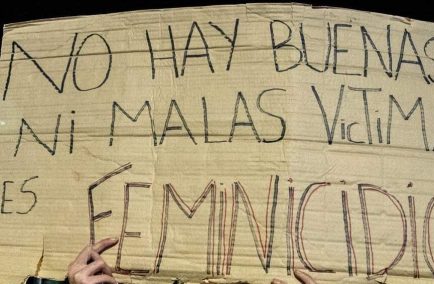 NO HAY BUENAS
Ni MALAS VicTiMA
ES FEMiNiCiDiO